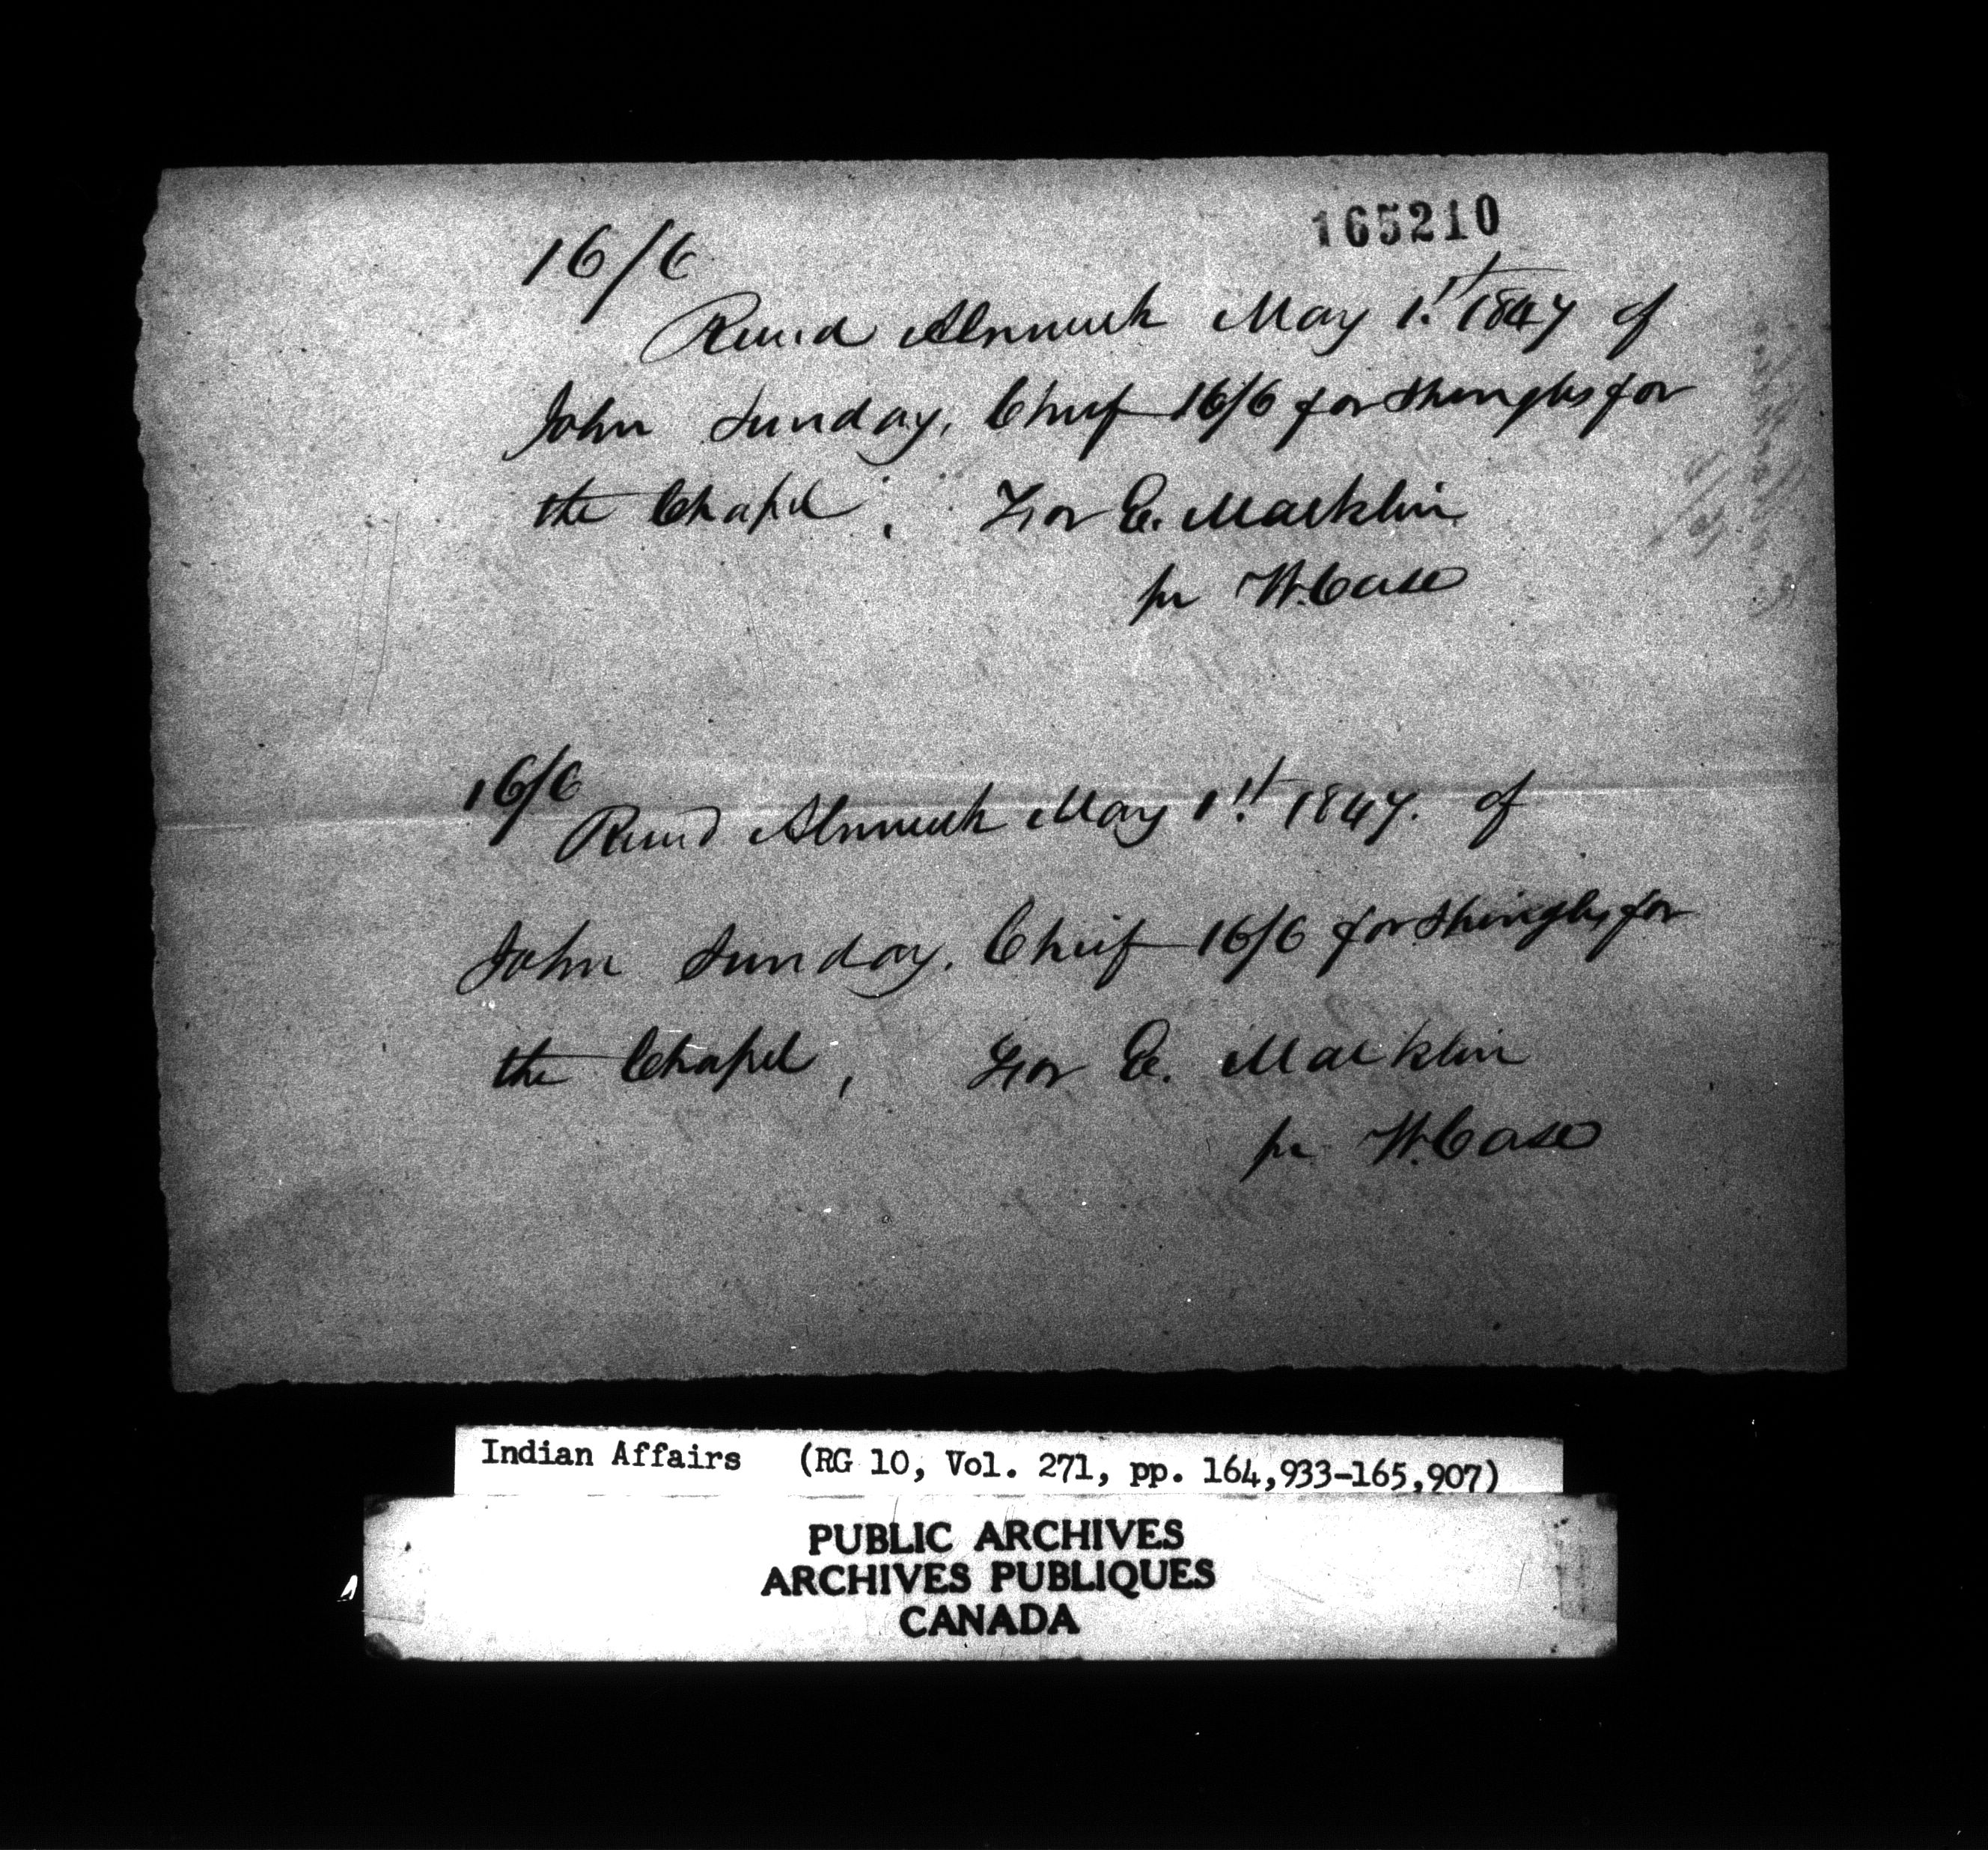 165210
16/6
Recd Alnwick May 1st 1847 of
John Sunday, Chief 16/6 for Shingles for
the Chapel, For E. Macklin
per W. Case
16/6
Recd Alnwick May 1st 1847. of
John Sunday, Chief 16/6 for Shingles for
the Chapel, For E. Macklin
per W. Case
Indian Affairs (RG 10, Vol. 271, pp. 164,933-165,907)
PUBLIC ARCHIVES
ARCHIVES PUBLIQUES
CANADA